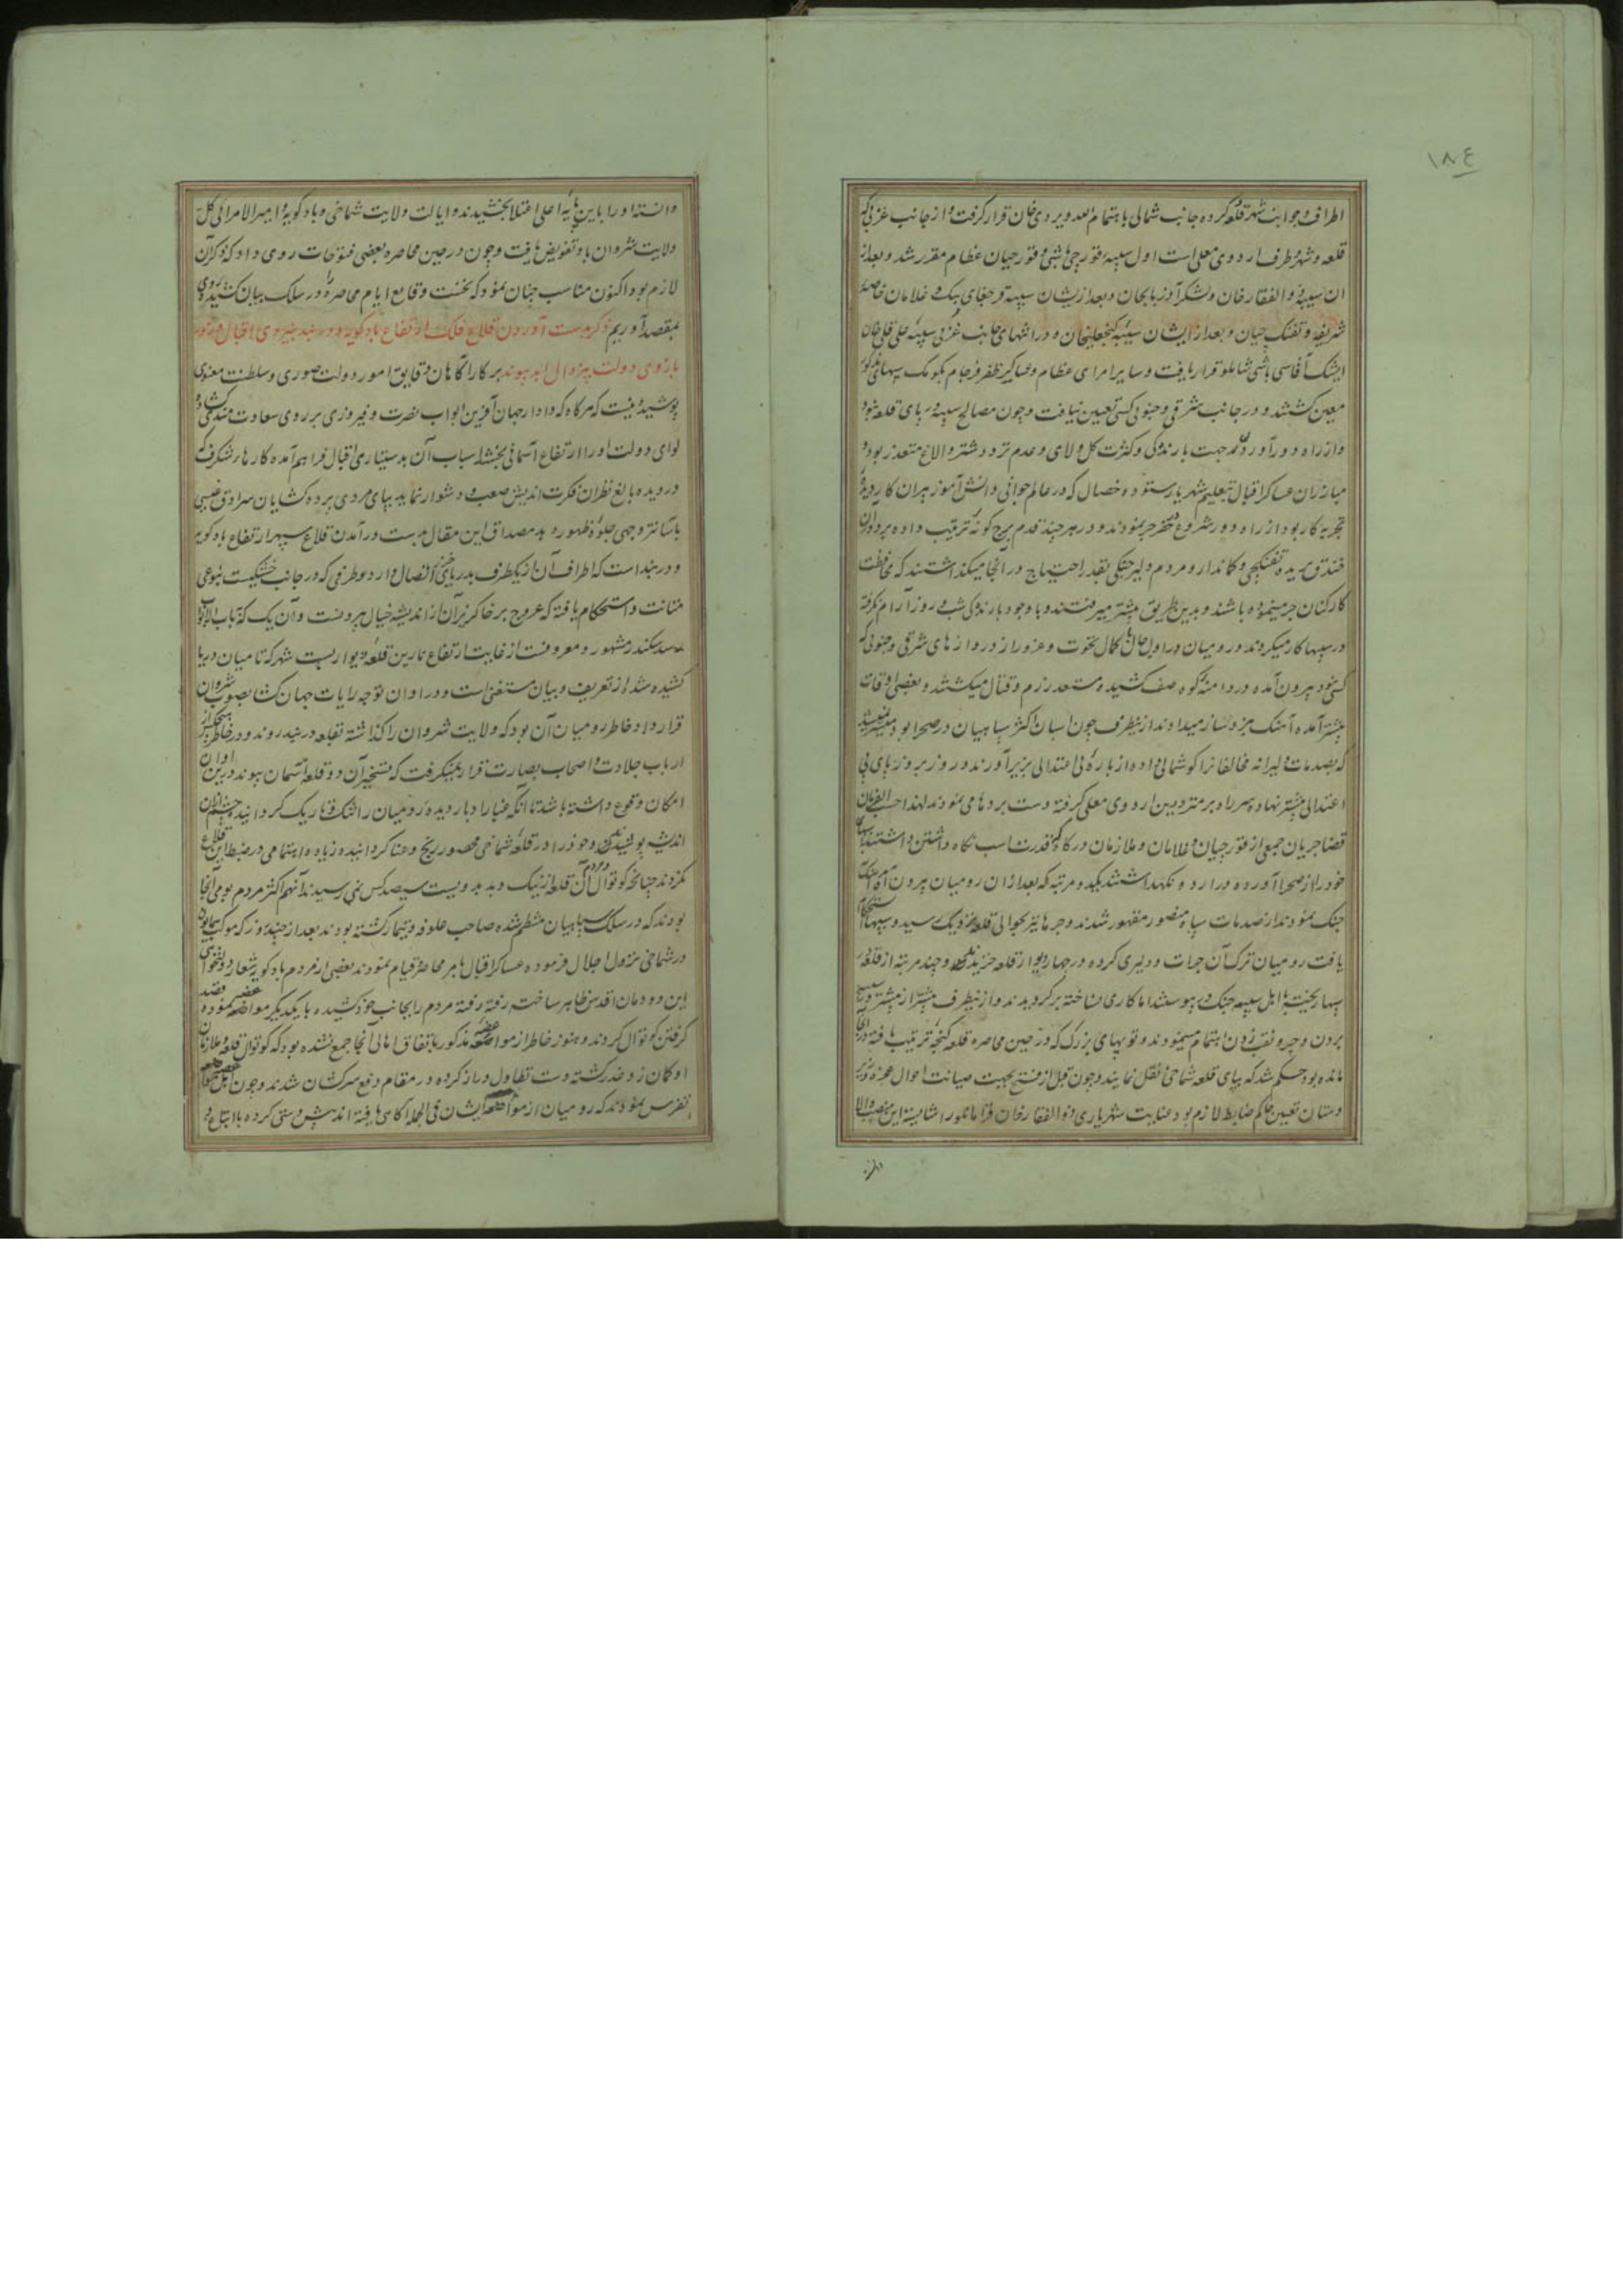 ۱۸٤
اطراف و جوانب شهر و قلعه کرده جانب شمالی باهتمام الله ویردی خان قرار گرفت و از جانب غربی که
قلعه و شهر و طرف اردوی معلی است اول سیبه قورچی باشی و قورچیان عظام مقرر شد و بعد از
ان سیبه ذوالفقار خان و لشکر آذربایجان و بعد از ایشان سیبه قرچغای بیک و غلامان خاصه
شریفه و تفنکچیان و بعد از ایشان سیبه کنجعلیخان و در انتهای جانب غربی سیبه علی قلی خان
ایشک آقاسی باشی شاملو قرار یافت و سایر امرای عظام و عساکر ظفر فرجام بکومک سیبهای مذکور
معین کشتند و در جانب شرقی و جنوبی کسی تعیین نیافت و چون مصالح سیبه در پای قلعه نبود
و از راه دور آورده جهت بارندکی و کثرت کل و لای و عدم تردد شتر و الاغ متعذر بود
مبارزان عساکر اقبال بتعلیم شهریار ستوده خصال که در عالم جوانی دانش آموز پیران کار دیده
تجربه کار بود از راه دور شروع در حفر جر نمودند و در هر چند قدم برج کونه ترتیب داده بر دور آن
خندق بریده تفنکچی و کماندار و مردم دلیر جنکی بقدر احتیاج در آنجا میکذاشتند که محافظت
کارکنان جر مینموده باشند و بدین طریق پیشتر میرفتند و با وجود بارندکی شب و روز آرام نکرفته
در سیبها کار میکردند و رومیان در اول حال با کمال نخوت و غرور از دروازهای شرقی و جنوبی که
کسی نبود بیرون آمده در دامنه کوه صف کشیده مستعد رزم و قتال میکشتند و بعضی اوقات
پیشتر آمده آهنک نبرد ساز میدادند از ینطرف چون اسبان اکثر سپاهیان در صحرا بود میسر نمیشد
که بصدمات دلیرانه مخالفانرا کوشمالی داده از باره بی اعتدالی بزیر آورند و روز بروز پای بی
اعتدالی پیشتر نهاده سر راه بر مترددین اردوی معلی کرفته دست بردها می نمودند لهذا حسب الفرمان
قضا جریان جمعی از قورچیان و غلامان و ملازمان درکاه که قدرت اسب نکاه داشتن داشتند اسبان
خود را از صحرا آورده در اردو نکهداشتند یکدو مرتبه که بعد از ان رومیان بیرون آمده آهنک
جنک نمودند از صدمات سپاه منصور مقهور شدند و جرها نیز بحوالی قلعه نزدیک رسید و سیبها استحکام
یافت رومیان ترک آن جرات و دلیری کرده در چهار دیوار قلعه خزیدند و چند مرتبه از قلعه بر
سیبها ریخته با اهل سیبه جنک در پیوستند اما کاری نساخته برکردیدند و از ینطرف پیشتر از پیشتر در سیبه
بردن و جر و نقب زدن اهتمام مینمودند و توپهای بزرک که در حین محاصره قلعه کنجه ترتیب یافته در آنجا
مانده بود حکم شد که بپای قلعه شماخی نقل نمایند و چون قبل از فتح بجهت صیانت احوال عجزه و زیر
دستان تعیین حاکم ضابط لازم بود عنایت شهریاری ذوالفقار خان قرامانلو را شایسته این منصب والا
دانسته
دانسته او را باین پایه اعلی اعتلا بخشیدند و ایالت ولایت شماخی و بادکوبه و امیرالامرائی کل
ولایت شروان باو تفویض یافت و چون در حین محاصره بعضی فتوحات روی داد که ذکر آن
لازم بود اکنون مناسب چنان نمود که نخست وقایع ایام محاصره را در سلک بیان کشیده روی
بمقصد آوریم ذکر بدست آوردن قلاع فلک ارتفاع بادکوبه و دربند بنیروی اقبال و زور
بازوی دولت بیزوال ابد پیوند بر کارآکاهان دقایق امور دولت صوری و سلطنت معنوی
پوشیده نیست که هرکاه که دادار جهان آفرین ابواب نصرت و فیروزی بر روی سعادت مندی کشاده
لوای دولت او را ارتفاع آسمانی بخشد اسباب آن بدستیاری اقبال فراهم آمده کارهای شکرف که
در دیده بالغ نظران فکرت اندیش صعب و دشوار نماید بپای مردی پرده کشایان سرادق غیبی
باسانتر وجهی جلوه ظهور دهد مصداق این مقال بدست درآمدن قلاع سپهر ارتفاع بادکوبه
و دربند است که اطراف آن از یکطرف بدریای اتصال دارد و طرفی که در جانب خشکیست بنوعی
متانت و استحکام یافته که عروج بر خاکریز آن از اندیشه خیال بیرونست و آن یک که بباب الابواب
و سد سکندر مشهور و معروفست از غایت ارتفاع نارین قلعه و دیوار بست شهر که تا میان دریا
کشیده شد از تعریف و بیان مستغنی است و در اوان توجه رایات جهان کشا بصوب شروان
قرار داد خاطر رومیان آن بود که ولایت شروان را کذاشته بقلعه دربند روند و در خاطر هیچکس از
ارباب جلادت و اصحاب بصارت قرار نمیکرفت که تسخیر آن دو قلعه آسمان پیوند درین اوان
امکان وقوع داشته باشد تا آنکه غبار ادبار دیده رومیان را تنک و تاریک کردانیده چشم از آن
اندیشه پوشیدند و خود را در قلعه شماخی محصور رنج و عنا کردانیده زیاده اهتمامی در ضبط این قلاع
نکردند چنانچه کوتوال و مردم آن قلعه از نیک و بد بدویست سیصد کس نمی رسیدند آنهم اکثر مردم بومی آنجا
بودند که در سلک سپاهیان منتظم شده صاحب علوفه و تیمار کشته بودند بعد از چند روز که موکب همایون
در شماخی نزول اجلال فرموده عساکر اقبال بامر محاصره قیام نمودند بعضی از مردم بادکوبه شعار دولتخواهی
این دودمان اقدس ظاهر ساخت رفته رفته مردم را بجانب خود کشیده با یکدیکر مواضعه نموده قصد
کرفتن کوتوال کردند و هنوز خاطر از مواضعه مذکور باتفاق اهالی آنجا جمع نشده بود که کوتوال قلعه و ملازمان
او کمان زد غدر کشته دست تطاول دراز کرده در مقام دفع سرکشان شدند و چون اهل مواضعه
تفرس نمودند که رومیان از مواضعه ایشان فی الجمله آکاهی یافته اندیش دستی کرده با اتباع و